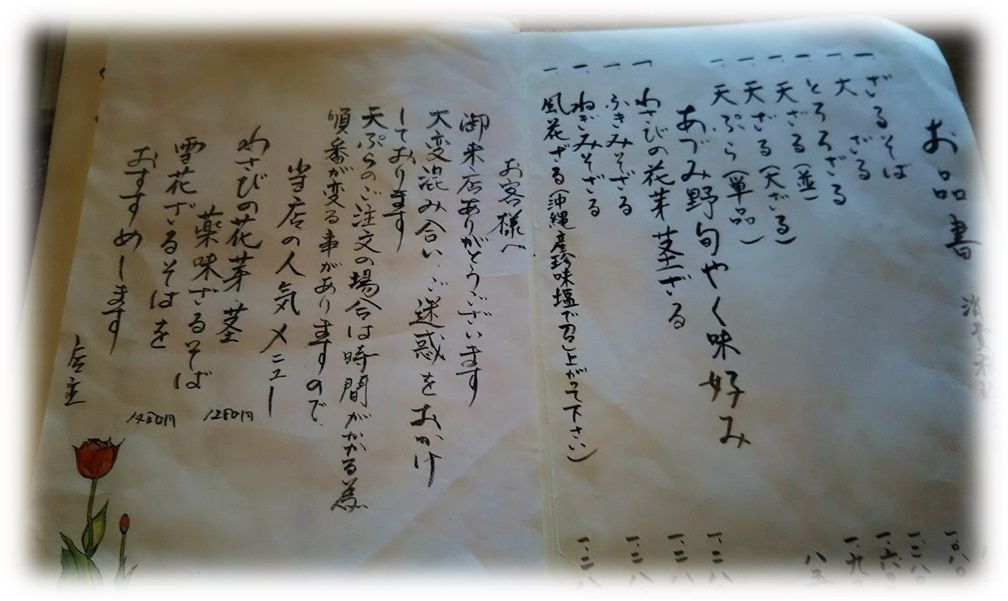 お品書
一、ざるそば
一、大ざる
一、とろろざる
一、天ざる(並)
一、天ざる(天ざる)
一、天ぷら(単品)
あづみ野旬やく味好み
一、わさびの花芽茎ざる
一、ふきみそざる
一、ねぎみそざる
一、風花ざる(沖縄産珍味塩で召し上がて下さい)
一、二八
一、二八
一、二八
一、二八
お客様へ
御来店ありがとうございます
大変混み合い、ご迷惑をおかけ
しております
天ぷらのご注文の場合は時間がかかる為
順番が変る事がありますので
当店の人気メニュー
わさびの花芽茎
薬味ざるそば 1280円
雪花ざるそばを 1480円
おすすめします
店主